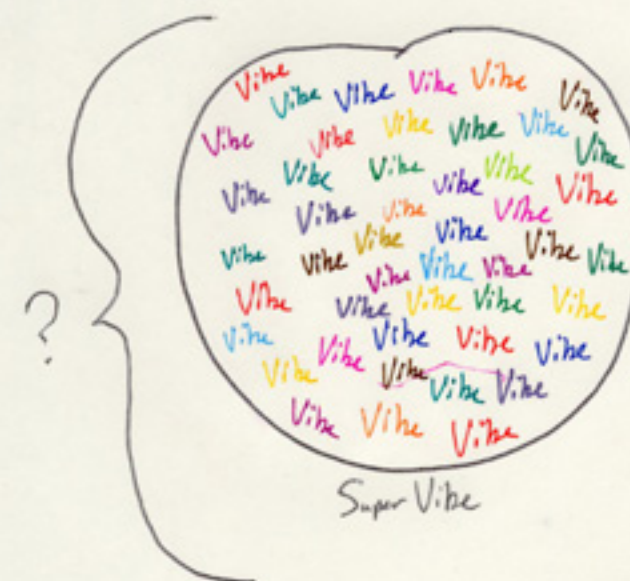 Vibe Vibe Vibe Vibe Vibe Vibe
Vibe Vibe Vibe Vibe Vibe Vibe
Vibe Vibe Vibe Vibe Vibe
Vibe Vibe Vibe Vibe
Vibe Vibe Vibe Vibe Vibe Vibe
Vibe Vibe Vibe
? Vibe Vibe Vibe Vibe Vibe
Vibe Vibe Vibe Vibe Vibe
Vibe Vibe Vibe Vibe
Vibe Vibe Vibe
Super Vibe